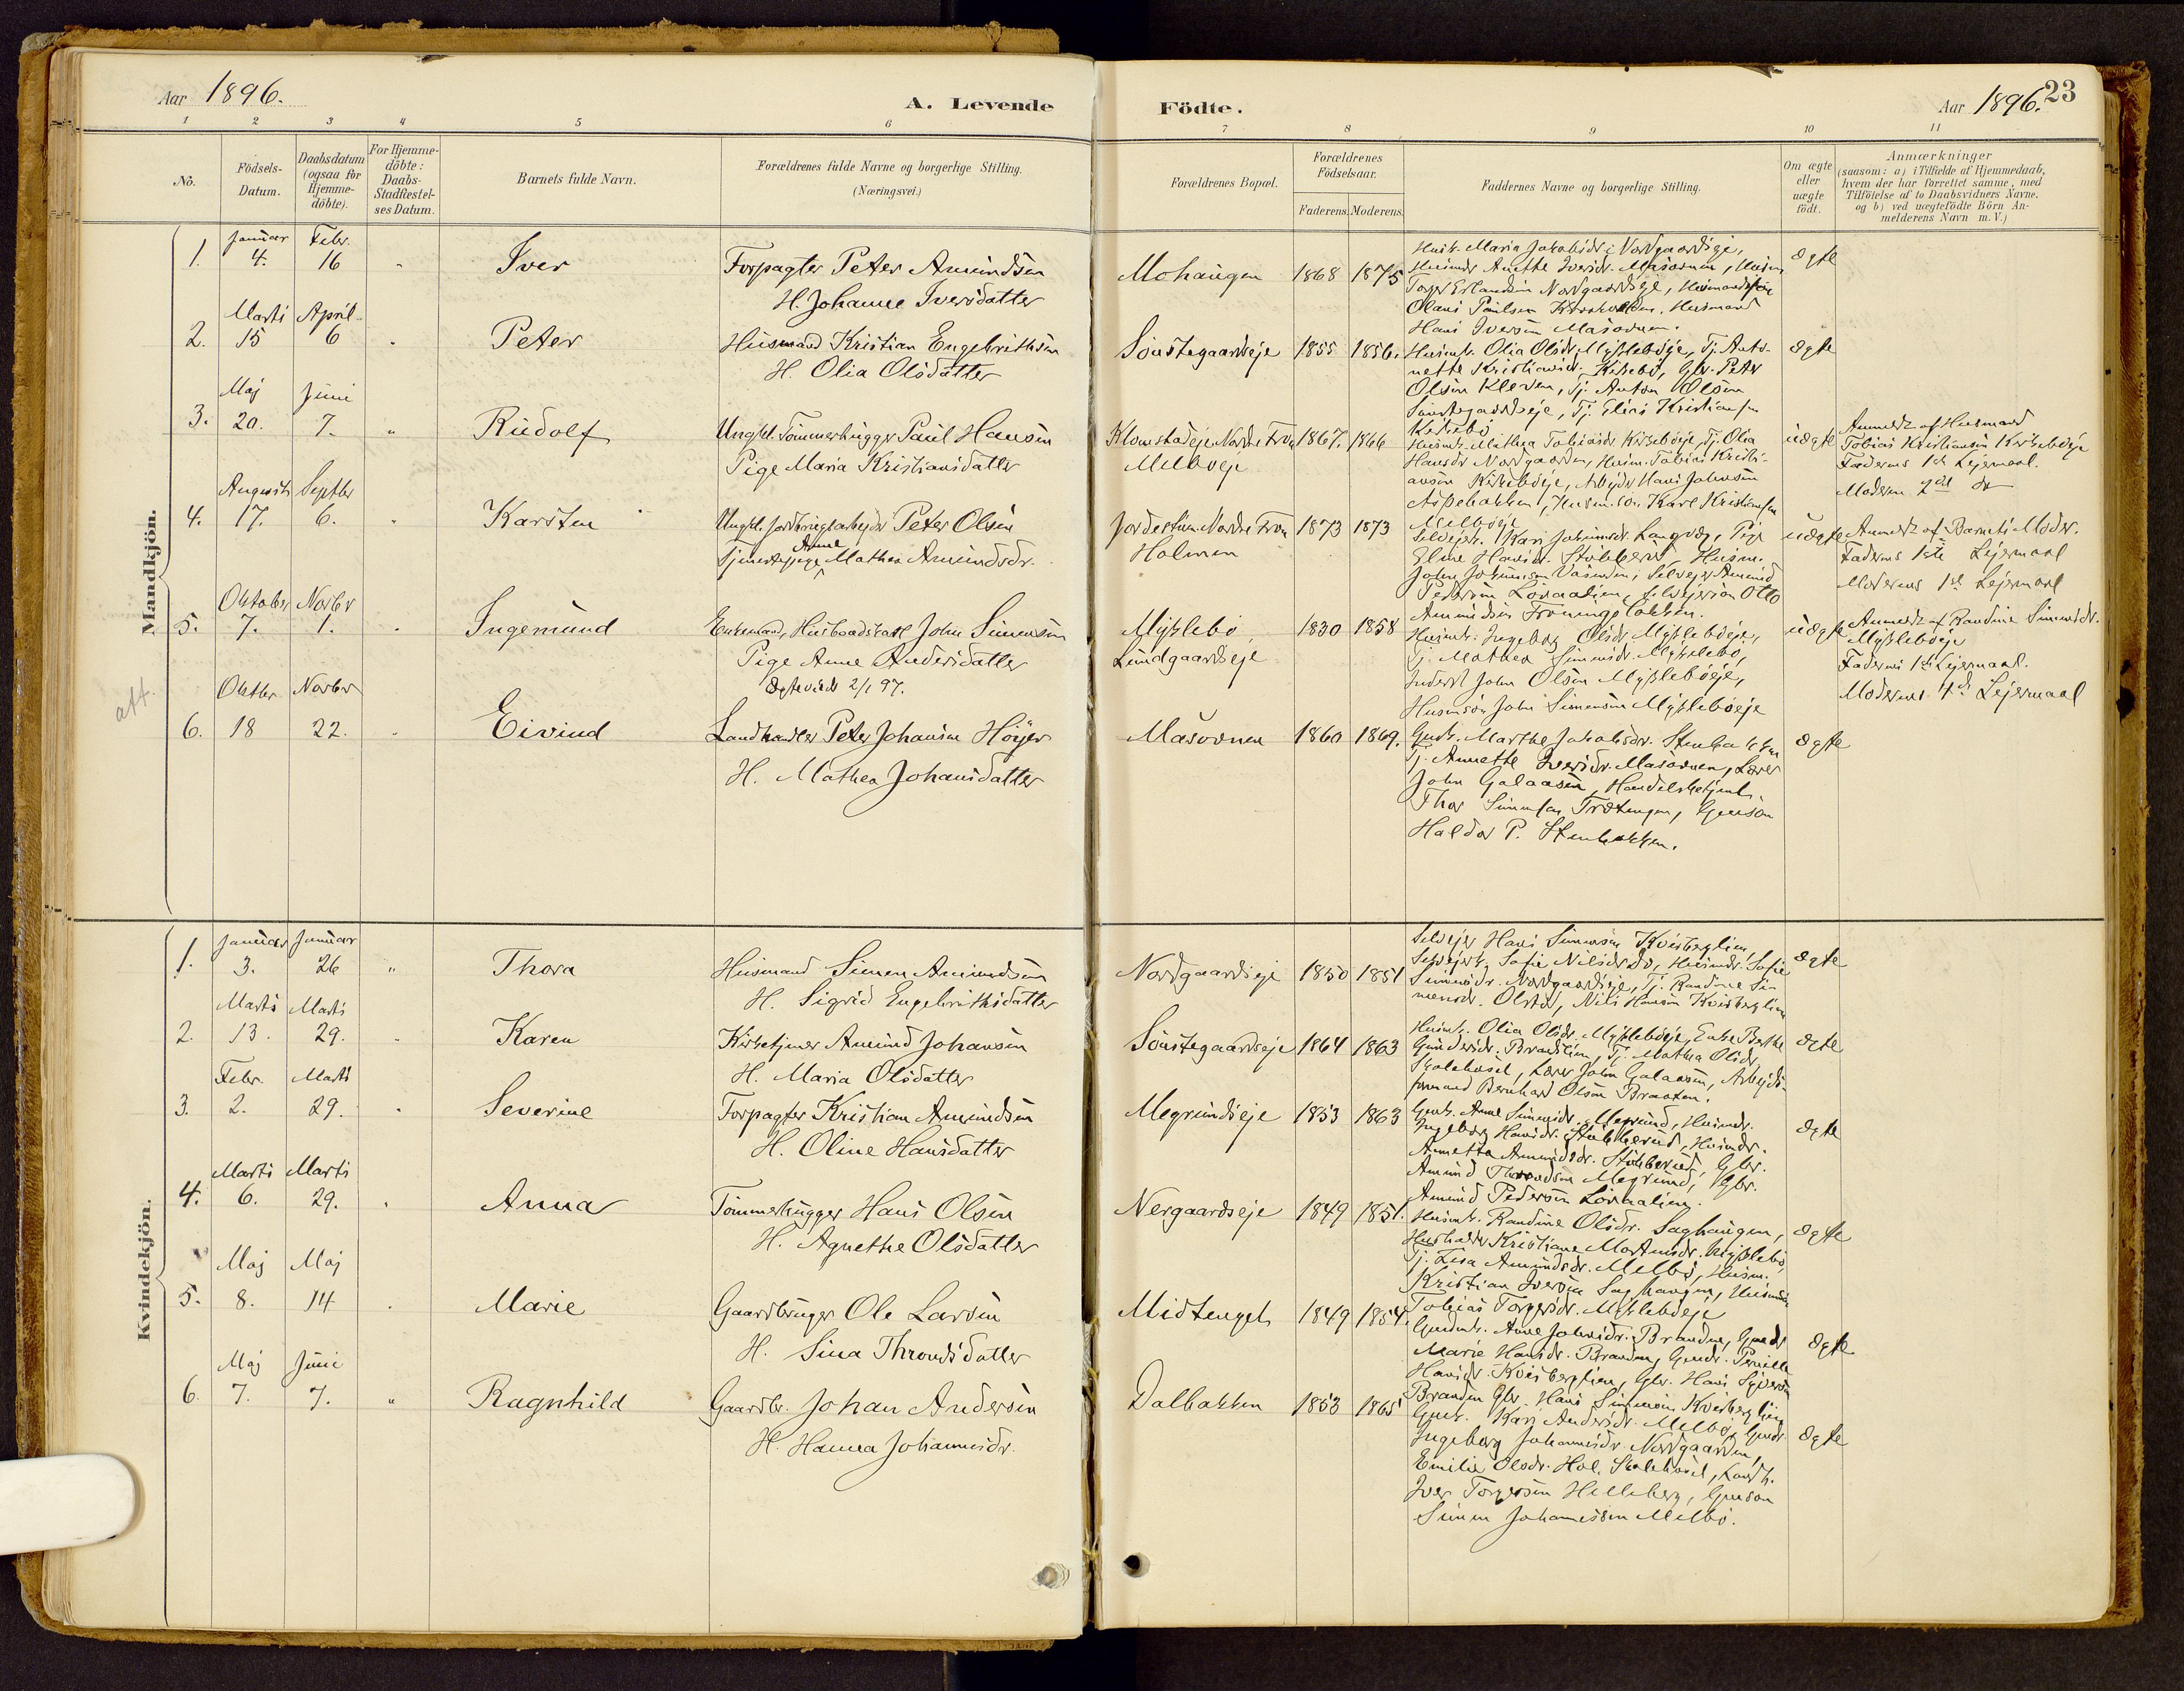 Aar 1896.
A. Levende
Födte.
Aar 1896.
23
1 2 3 4 5 6 7 8 9 10 11
No.
Födsels-Datum.
Daabsdatum (ogsaa for Hjemmedöbte).
For Hjemmedöbte: Daabs-Stadfæstelses Datum.
Barnets fulde Navn.
Forældrenes fulde Navne og borgerlige Stilling. (Næringsvei.)
Forældrenes Bopæl.
Forældrenes Födselsaar.
Faderens. Moderens.
Faddernes Navne og borgerlige Stilling.
Om ægte eller uægte födt.
Anmærkninger
(saasom: a) i Tilfælde af Hjemmedaab, hvem der har forrettet samme, med Tilföielse af to Daabsvidners Navne. og b) ved uægtefödte Börn Anmelderens Navn m. V.)
Mandkjön.
Januar Febr.
1. 4. 16 " Iver
Forpagter Peter Amundsen
H. Johanne Iversdatter
Mohaugen 1868 1875
Husk. Maria Jakobsdr. Nordgaardseje,
Husmdr. Anette Iversdr. Masovnen, Husm.
Torger Erlandsen Nordgaardseje, Husmandssøn
Olaus Paulsen
Husmand
Hans Iversen Masovnen.
ægte
Marts April
2. 15 6 " Peter
Husmand Kristian Engebrithsen
H. Olia Olsdatter
Sönstegaardseje 1855 1856.
Husmk. Olia Olsdr. Myklebøeje, Tj. Anto-
nette Kristiansdr. Kirkebø, Gbr. Peter
Olsen Kleven, Tj. Anton Olsen
Sönstegaardseje, Tj. Elias Kristiansen
Kirkebø
ægte
Maj Juni
3. 20. 7. " Rudolf
Ungkl. Tömmerhugger Paul Hansen
Pige Maria Kristiansdatter
Klomstadeje Nordre Fron
Melbøeje
1867. 1866
Husmk. Mathea Tobiasdr. Kirkebøeje, Tj. Olia
Hansdr. Nordgaarden, Husm. Tobias Kristi-
ansen Kirkebøeje, Arbejder Hans Johansen
Aspebakken, Husm.søn Karl Kristiansen
Melbøeje
uægte
Anmeldt af Husmand
Tobias Kristiansen Kirkebøeje
Faderens 1ste Lejermaal.
Moderens 2det do
August Septbr
4. 17. 6. " Karsten
Ungkl. Jordbrugsarbejder Peter Olsen
Tjenestepige Anne Mathea Amundsdr.
Nordre Fron
Holmen
1873 1873
Selvejerk. Kari Johannesdr. Langvæg, Pige
Eline Hansdr. Stubberud, Husm.
John Johannessen
Selvejer Amund
Pedersen Lövaalien, Selvejersøn Otto
Amundsen
uægte
Anmeldt af Barnets Moder.
Faderens 1ste Lejermaal
Moderens 1ste Lejermaal
Oktober Novbr
5. 7. 1. " Ingemund
Enkemand, Husbondskarl John Simensen
Pige Anne Andersdatter
Ægteviede 2/1 97.
Myklebø,
Lundgaardseje
1830 1858
Husmk. Ingeborg Olsdr. Myklebøeje,
Tj. Mathea Simensdr. Myklebø,
Inderst John Olsen Myklebøeje,
Husmsøn John Simensen Myklebøeje
uægte
Anmeldt af Randine Simensdr.
Myklebøeje
Faderens 1ste Lejermaal.
Moderens 4de Lejermaal
att.
Oktbr Novbr
6. 18 22. " Eivind
Landhandler Peter Johansen Höyer
H. Mathea Johansdatter
Masovnen 1860 1869.
Gmdk. Marthe Jakobsdr. Stenbakken
Tj. Annette Iversdr. Masovnen, Lærer
John Galaasen, Handelsbetjent
Thor Simensen Trætengen, Gmdsøn
Haldor P. Stenbakken.
ægte
Kvindekjön.
Januar Januar
1. 3. 26 " Thora
Husmand Simen Amundsen
H. Sigrid Engebrithsdatter
Nordgaardseje 1850 1851
Selvejer Hans Simensen Kvisberglien,
Selvejerk. Sofie Nilsdr. do, Husmdr. Sofie
Simensdr. Nordgaardseje, Tj. Randine Si-
mensdr. Olstad, Nils Hansen Kvisberglien
ægte
Marts Marts
2. 13. 29. " Karen
Kirketjener Amund Johansen
H. Maria Olsdatter
Sönstegaardseje 1864 1863
Husmk. Olia Olsdr. Myklebøeje, Enke Berthe
Gundersdr. Brandlien, Tj. Mathea Olsdr.
Skolebøsel, Lærer John Galaasen, Arbejds-
formand Bernhard Olsen Braaten.
ægte
Febr. Marts
3. 2. 29. " Severine
Forpagter Kristian Amundsen
H. Oline Hansdatter
Megrundseje 1853 1863
Gmdk. Anne Simensdr. Megrund, Husmdr.
Ingeborg Hansdr. Stubberud, Husmdr.
Annette Amundsdr. Stubberud, Gbr.
Amund Throndsen Megrund, Gbr.
Amund Pedersen Lövaalien.
ægte
Marts Marts
4. 6. 29. " Anna
Tömmerhugger Hans Olsen
H. Agnethe Olsdatter
Nergaardseje 1849 1851.
Husmk. Randine Olsdr. Saghaugen,
Husholder Kristiane Mortensdr. Myklebø,
Tj. Lisa Amundsdr. Melbø, Husm.
Kristian Iversen Saghaugen, Husmsøn
Tobias Torgersdr. Myklebøeje
ægte
Maj Maj
5. 8. 14 " Marie
Gaardbruger Ole Larsen
H. Sina Throndsdatter
Midtenget 1849 1854.
Gmdmk. Anne Johnsdr. Branden, Gmdr
Marie Hansdr. Branden, Gmdr. Pernille
Hansdr. Kvisberglien, Gbr. Hans Syversen
Branden, Gbr. Hans Simensen Kvisberglien
ægte
Maj Juni
6. 7. 7. " Ragnhild
Gaardbr. Johan Andersen
H. Hanna Johannesdr.
Dalbakken 1853 1865
Gmdk. Kari Andersdr. Melbø, Gmdr.
Ingeborg Johannesdr. Nordgaarden,
Emilie Olsdr. Hol. Skolebøsel, Landh.
Iver Torgersen Hilleberg, Gmdsøn
Simen Johannessen Melbø.
ægte